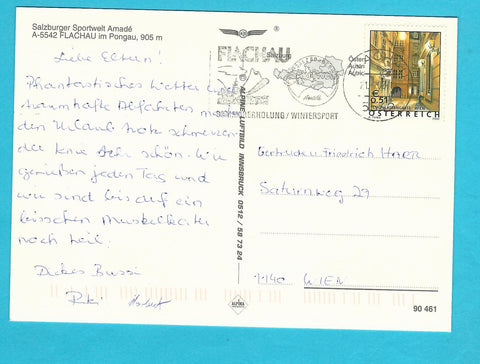 Salzburger Sportwelt Amadé
A-5542 FLACHAU im Pongau, 905 m
Liebe Eltern!
Phantastisches Wetter und
traumhafte Abfahrten machen
den Urlaub trotz schmerzen-
der Knie sehr schön. Wir
genießen jeden Tag und
wir sind bis auf ein
bisschen Muskelkater
noch heil.
Dickes Bussi
FLACHAU
Salzburg
SOMMERERHOLUNG / WINTERSPORT
€ 0,51
ÖSTERREICH
ALPINE LUFTBILD INNSBRUCK 0512 / 58 73 24
Gertrude u. Friedrich HARR
Saturnweg 29
1140 WIEN
ALPINA
90 461